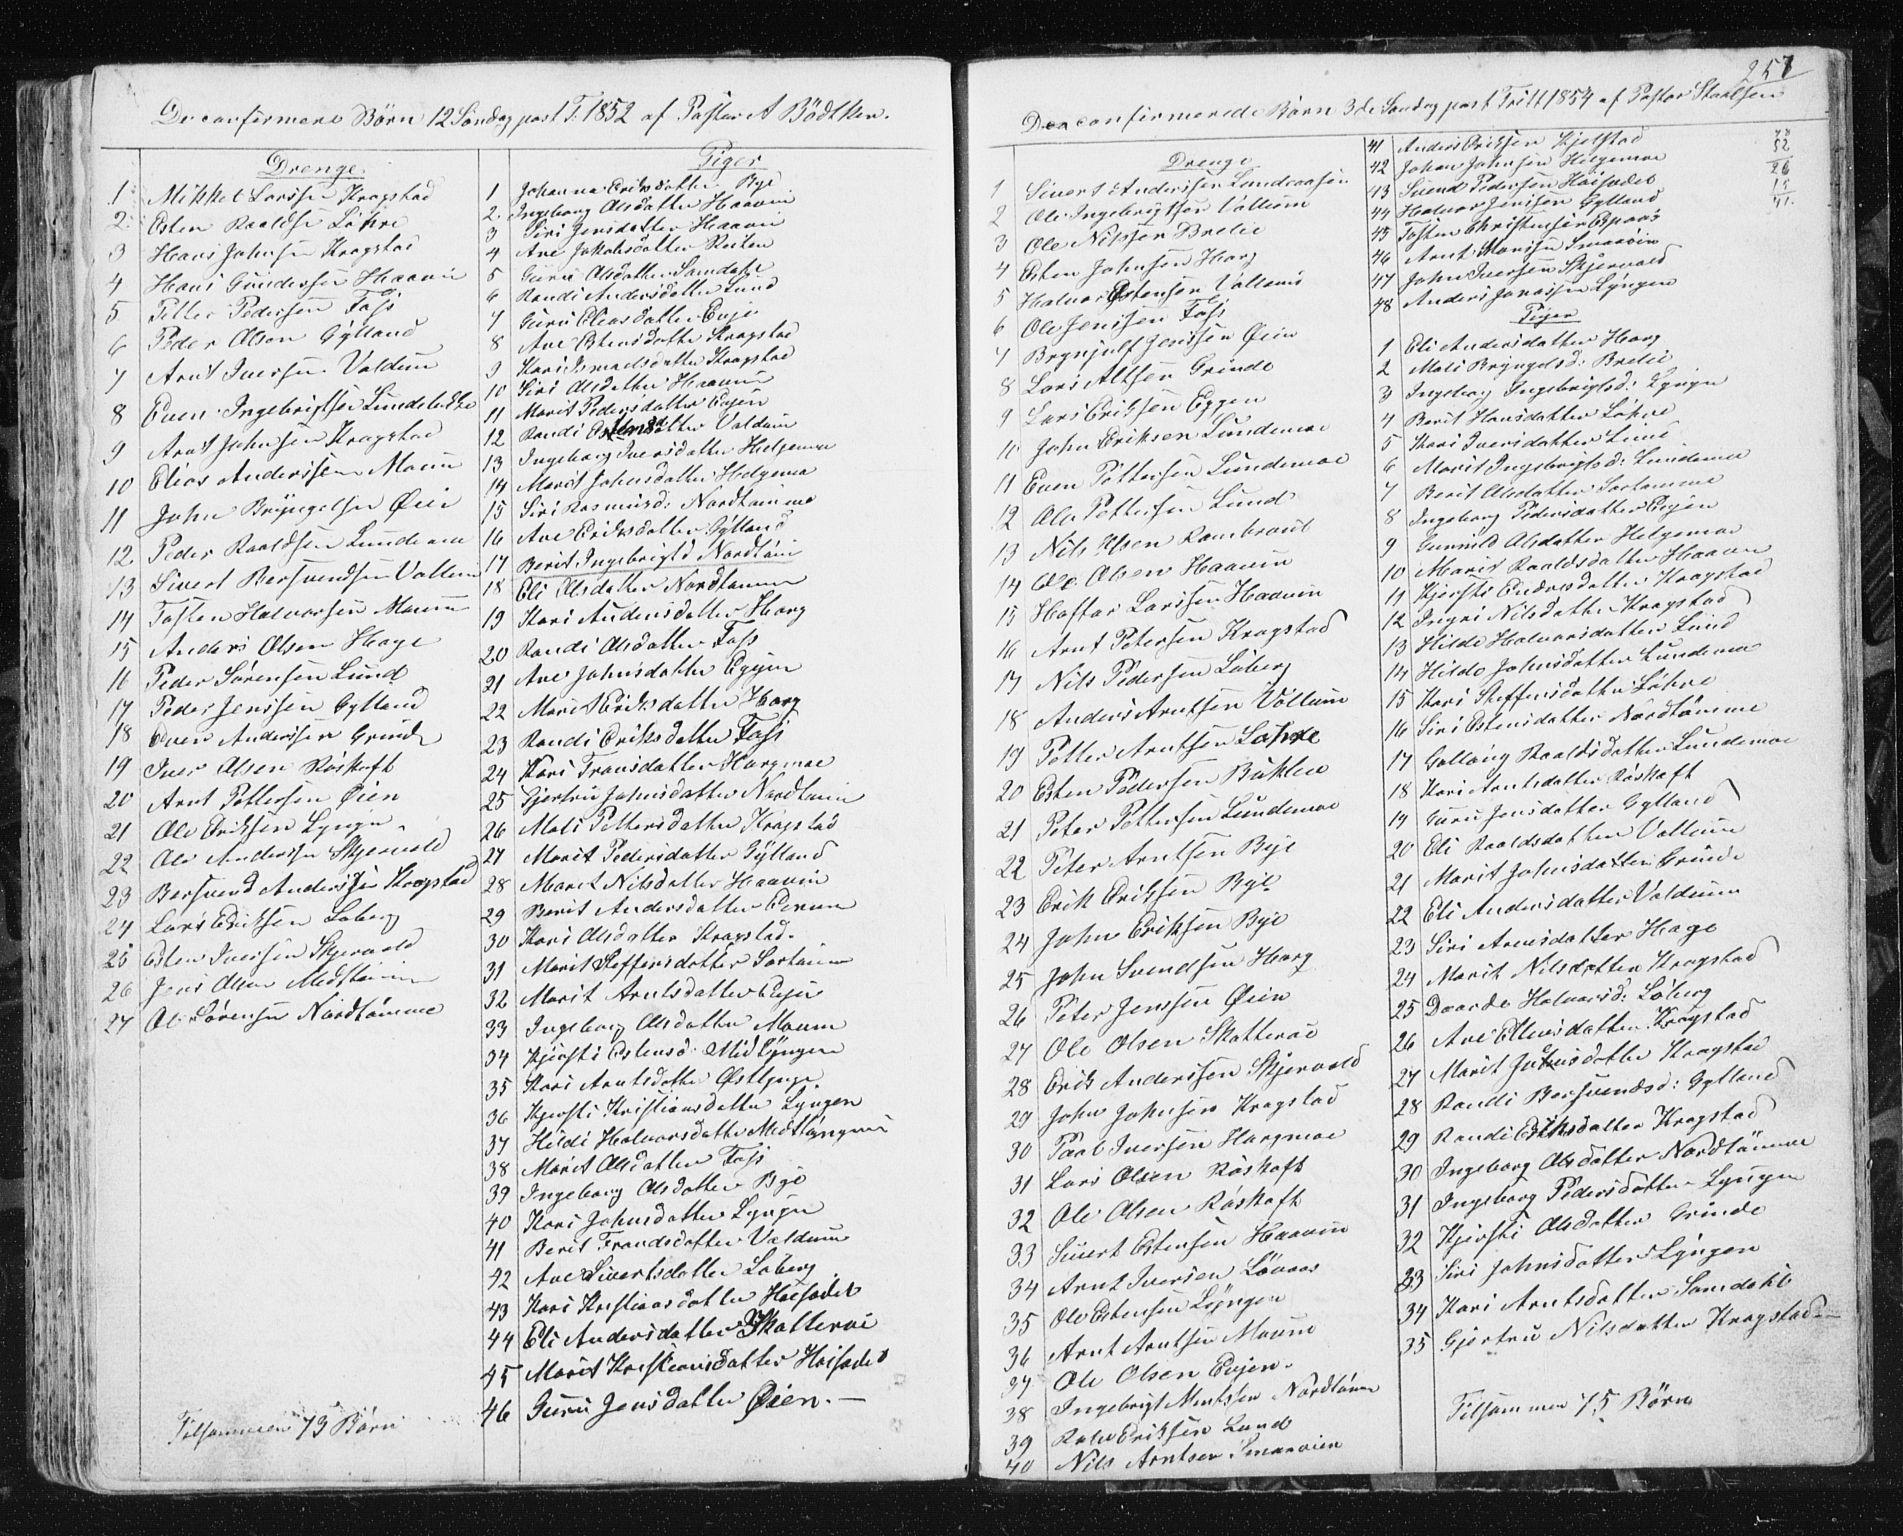 De confirmerte Børn 12 Søndag post T. 1852 af Pastor A Bödtker.
Drenge
1 Mikkel Larsen Kragstad
2 Esten Raaldse Løhre
3 Hans Johnsen Kragstad
4 Hans Gundersen Haavin
5 Petter Pedersen Foss
6 Peder Olsen Gylland
7 Arnt Iversen Valdum
8 Even Ingebrigtsen Lundebakke
9 Arnt Johnsen Kragstad
10 Elias Anderssen Moum
11 John Bryngelsen Øien
12 Peder Raaldsen Lundemo
13 Sivert Bersvendsen Vollum
14 Tosten Halvorsen Moum
15 Anders Olsen Hage
16 Peder Sørensen Lund
17 Peder Jenssen Gylland
18 Even Anderssen Grinde
19 Iver Olsen Røskaft
20 Arnt Pettersen Øien
21 Ole Eriksen Lyngen
22 Ole Andersen Skjervold
23 Bersvend Anderssen Kragstad
24 Lars Eriksen Løberg
25 Esten Iversen Skjervold
26 Jens Olsen Medtømme
27 Ole Sørensen Nordtømme
Tilsammen 73 Børn
Piger
1 Johanna Eriksdatter Bye
2 Ingeborg Olsdatter Haavin
3 Siri Jensdatter Haavin
4 Ane Jakobsdatter Reiten
5 Guru Olsdatter Samdahl
6 Randi Andersdatter Lund
7 Guru Eliasdatter Evje
8 Ane Estensdatter Kragstad
9 Kari Ismaelsdatter Kragstad
10 Siri Olsdatter Haavin
11 Marit Pedersdatter Evjen
12 Randi Estensdatter Valdum
13 Ingeborg Iversdatter Helgemo
14 Marit Johnsdatter Helgemo
15 Siri Rasmusd: Nordtømme
16 Ane Eriksdatter Gylland
17 Berit Ingebrigtd Nordtømme
18 Eli Olsdatter Nordtømme
19 Kari Andersdatter Horg
20 Randi Olsdatter Foss
21 Ane Johnsdatter Eggen
22 Marit Eriksdatter Horg
23 Randi Eriksdatter Foss
24 Kari Fransdatter Horgmoe
25 Gjertru Johnsdatter Nordtømme
26 Mali Pettersdatter Kragstad
27 Marit Pedersdatter Gylland
28 Marit Nilsdatter Haavin
29 Berit Andersdatter
30 Kari Olsdatter Kragstad.
31 Marit Steffensdatter Sørtømme
32 Marit Arntsdatter Evjen
33 Ingeborg Olsdatter Moum
34 Kjersti Estensd. Midlyngen
35 Kari Arntsdatter Østlynge
36 Kjersti Kristiansdatter Lyngen
37 Hildi Halvorsdatter Medtlyngen
38 Marit Olsdatter Foss
39 Ingeborg Olsdatter Bye
40 Kari Johnsdatter Lyngen
41 Berit Frandsdatter Valdum
42 Ane Sivertsdatter Løberg
43 Kari Kristiansdatter Hoisædet
44 Eli Andersdatter Skatteroi
45 Marit Kristiansdatter Hoisædet
46 Guru Jensdatter Øien. —
257
De confirmerede Børn 3de Søndag post Tritt 1854 af Pastor Staalsen
Drenge
1 Sivert Anderssen Lundraasen
2 Ole Ingebrigtsen Vollum
3 Ole Nilssen Bredie
4 Esten Johnsen Horg
5 Halvor Østensen Vollum
6 Ole Jenssen Foss
7 Brynjulf Jenssen Øien
8 Lars Altsen Grinde
9 Lars Eriksen Eggen
10 John Eriksen Lundemoe
11 Even Pettersen Lundemoe
12 Ole Pettersen Lund
13 Nils Olsen Rambraut
14 Ole Olsen Haavin
15 Haftor Larssen Haavin
16 Arnt Petersen Kragstad
17 Nils Pedersen Løberg
18 Anders Arntsen Vollum
19 Petter Arntsen Løhre
20 Esten Pedersen Buklen
21 Peter Pettersen Lundemoe
22 Peter Arntsen Bye
23 Erik Eriksen Bye
24 John Eriksen Bye
25 John Svendsen Horg
26 Peter Jenssen Øien
27 Ole Olsen Skatteroie
28 Erik Anderssen Skjervold
29 John Johnsen Kragstad
30 Paal Iversen Horgmoe
31 Lars Olsen Røskaft
32 Ole Olsen Røskaft
33 Sivert Estensen Haavin
34 Arnt Iversen Løvaas
35 Ole Estensen Lyngen
36 Arnt Arntsen Moum
37 Ole Olsen Evjen.
38 Ingebrigt Mentsen Nordtømme
39 Eriksen Lund
40 Nils Arntsen Smaavien
41 Anders Eriksen Kjelstad
42 Johan Johnsen Helgemoe
43 Svend Pedersen Hoisædet
44 Halvor Jenssen Gylland
45 Tosten Christensen Espaas
46 Arnt Larssen Smaavien
47 John Iversen Skjervold
48 Anders Jonassen Lyngen
Piger
1 Eli Andersdatter Horg
2 Mali Bryngelsd: Bredie
3 Ingeborg Ingebrigtsd: Lyngen
4 Berit Hansdatter Løhre
5 Kari Iversdatter Lund
6 Marit Ingebrigtsd: Lundemo
7 Berit Olsdatter Sørtømme
8 Ingeborg Pedersdatter Evjen
9 Gunnild Olsdatter Helgemoe
10 Marit Raaldsdatter Haavin
11 Kjersti Endresdatter Kragstad
12 Ingri Nilsdatter Kragstad
13 Hilde Halvorsdatter Lund
14 Hilde Johnsdatter Lundemo
15 Kari Steffensdatter Løhre
16 Siri Estensdatter Nordtømme
17 Gollaug Raaldsdatter Lundemoe
18 Kari Arntsdatter Røskaft
19 Guru Jensdatter Gylland
20 Eli Raaldsdatter Vollum
21 Marit Johnsdatter Grinde
22 Eli Andersdatter Valdum
23 Siri Arensdatter Hage
24 Marit Nilsdatter Kragstad
25 Dorde Halvorsd: Løberg
26 Ane Ellensdatter Kragstad
27 Marit Johnsdatter Kragstad
28 Randi Bersvendsd: Gylland
29 Randi Eriksdatter Kragstad
30 Ingeborg Olsdatter Nordtømme
31 Ingeborg Pedersdatter Lyngen
32 Kjersti Olsdatter Grinde
33 Siri Johnsdatter Lyngen
34 Kari Arntsdatter Samdahl
35 Gjertru Nilsdatter Kragstad
Tilsammen 75 Børn